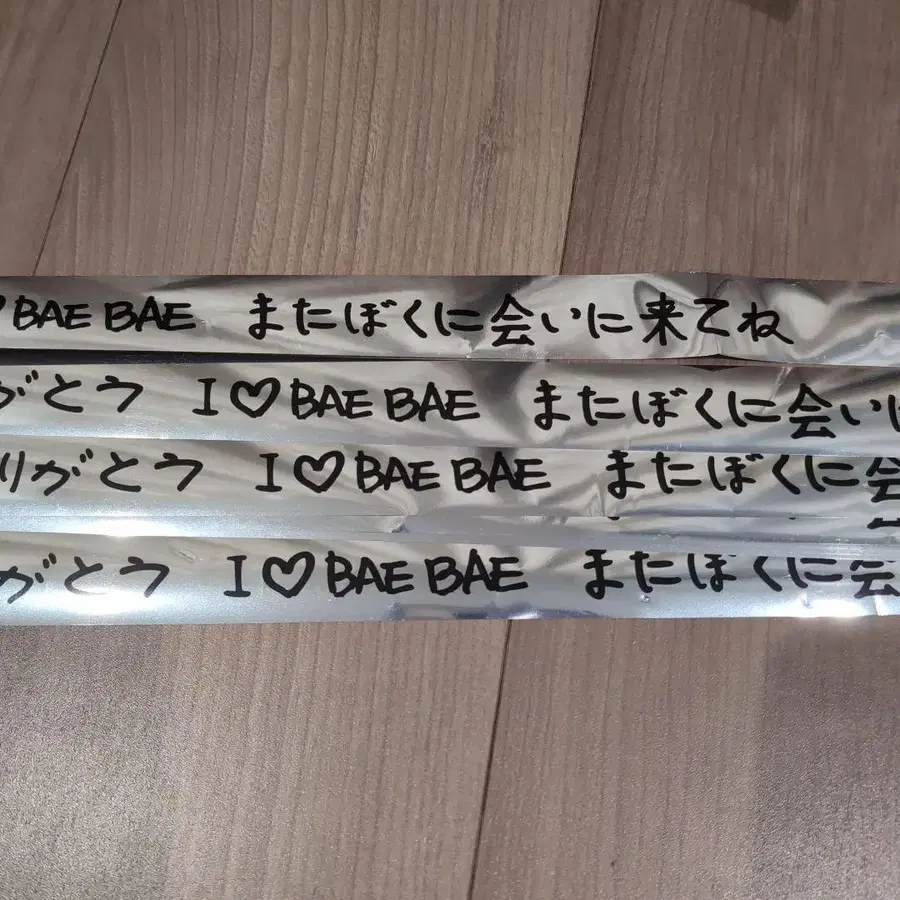 ♡BAE BAE またぼくに会いに来てね
がとう I♡BAE BAE またぼくに会いに
りがとう I♡BAE BAE またぼくに会
がとう I♡BAE BAE またぼくに会